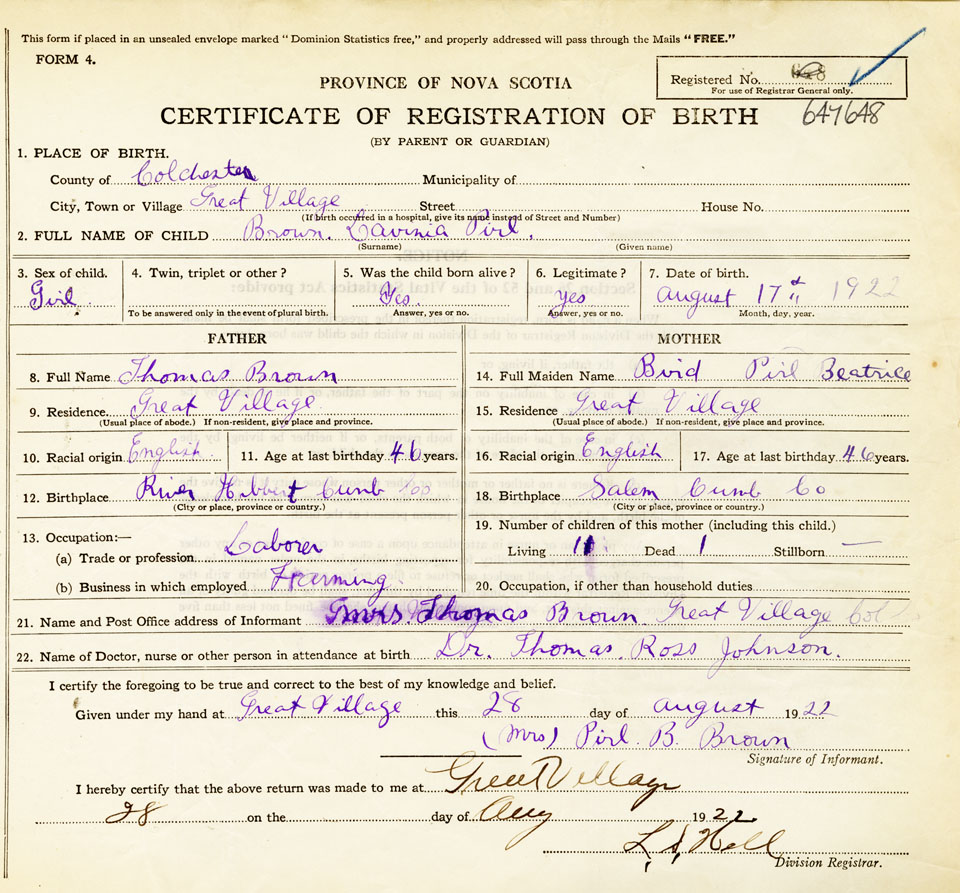 This form if placed in an unsealed envelope marked "Dominion Statistics free," and properly addressed will pass through the Mails "FREE."
FORM 4.
Registered No.
For use of Registrar General only.
PROVINCE OF NOVA SCOTIA
647648
CERTIFICATE OF REGISTRATION OF BIRTH
(BY PARENT OR GUARDIAN)
1. PLACE OF BIRTH.
County of Colchester Municipality of
City, Town or Village Great Village Street House No.
(If birth occurred in a hospital, give its name instead of Street and Number)
2. FULL NAME OF CHILD Brown. Lavinia Pirl.
(Surname) (Given name)
3. Sex of child. 4. Twin, triplet or other? 5. Was the child born alive? 6. Legitimate? 7. Date of birth.
Girl. Yes. yes August 17th 1922
To be answered only in the event of plural birth. Answer, yes or no. Answer, yes or no. Month, day, year.
FATHER MOTHER
8. Full Name Thomas Brown 14. Full Maiden Name Bird Pirl Beatrice
9. Residence Great Village 15. Residence Great Village
(Usual place of abode.) If non-resident, give place and province. (Usual place of abode.) If non-resident, give place and province.
10. Racial origin English 11. Age at last birthday 46 years. 16. Racial origin English 17. Age at last birthday 46 years.
12. Birthplace River Hibbert Cumb Coo 18. Birthplace Salem Cumb Co
(City or place, province or country.) (City or place, province or country.)
13. Occupation:— 19. Number of children of this mother (including this child.)
(a) Trade or profession Laborer Living 11 Dead 1 Stillborn —
(b) Business in which employed Farming. 20. Occupation, if other than household duties
21. Name and Post Office address of Informant Mrs. Thomas Brown Great Village Col
22. Name of Doctor, nurse or other person in attendance at birth Dr. Thomas. Ross Johnson.
I certify the foregoing to be true and correct to the best of my knowledge and belief.
Given under my hand at Great Village this 28 day of August 1922
(Mrs) Pirl. B. Brown
Signature of Informant.
I hereby certify that the above return was made to me at Great Village
28 on the day of Aug 1922
L. S. Hill
Division Registrar.